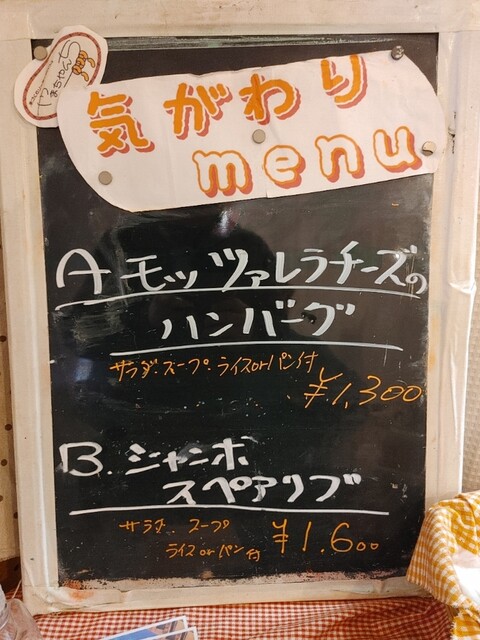 気がわり
menu
A モッツァレラチーズの
ハンバーグ
サラダ・スープ・ライスorパン付
¥1,300
B. ジャンボ
スペアリブ
サラダ スープ
ライスorパン付
¥1.600